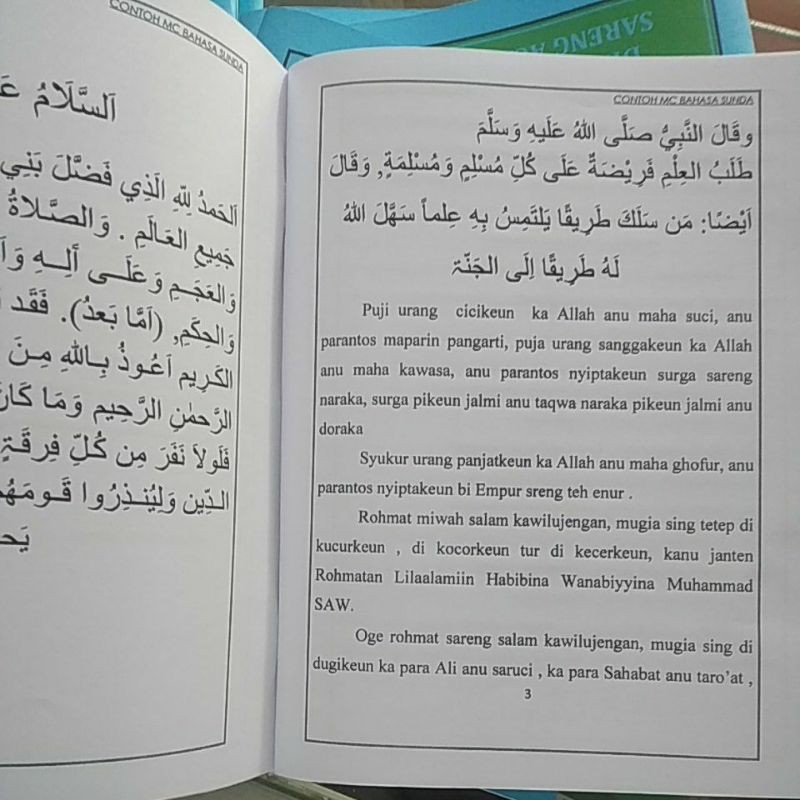 CONTOH MC BAHASA SUNDA
اَلسَّلَامُ
اَلحَمدُ لِلّٰهِ الَّذِي فَضَّلَ بَنِي
جَمِيعِ العَالَمِ . وَالصَّلَاةُ
وَالعَجَمِ وَعَلَـى أَلِـهِ
وَالحِكَمِ, (اَمَّا بَعدُ). فَقَد
الكَرِيم اَعُـوذُ بِـاللهِ مِـنَ
الرَّحمٰنِ الرَّحِيم وَمَا كَانَ
فَلَولَا نَفَرَ مِن كُلِّ فِرقَـةٍ
الـدِّين وَلِيُنـذِرُوا قَـومَهُم
SARENG
CONTOH MC BAHASA SUNDA
وقَالَ النَّبِيُّ صَلَّى اللهُ عَلَيهِ وَسَلَّمَ
طَلَبُ العِلْمِ فَرِيْضَةٌ عَلَى كُلِّ مُسْلِمٍ وَمُسْلِمَةٍ, وَقَالَ
اَيْضًا: مَن سَلَكَ طَرِيقًا يَلتَمِسُ بِهِ عِلماً سَهَّلَ اللهُ
لَهُ طَرِيقًا إِلَى الجَنّة
Puji urang cicikeun ka Allah anu maha suci, anu
parantos maparin pangarti, puja urang sanggakeun ka Allah
anu maha kawasa, anu parantos nyiptakeun surga sareng
naraka, surga pikeun jalmi anu taqwa naraka pikeun jalmi anu
doraka
Syukur urang panjatkeun ka Allah anu maha ghofur, anu
parantos nyiptakeun bi Empur sreng teh enur .
Rohmat miwah salam kawilujengan, mugia sing tetep di
kucurkeun , di kocorkeun tur di kecerkeun, kanu janten
Rohmatan Lilaalamiin Habibina Wanabiyyina Muhammad
SAW.
Oge rohmat sareng salam kawilujengan, mugia sing di
dugikeun ka para Ali anu saruci , ka para Sahabat anu taro'at ,
3